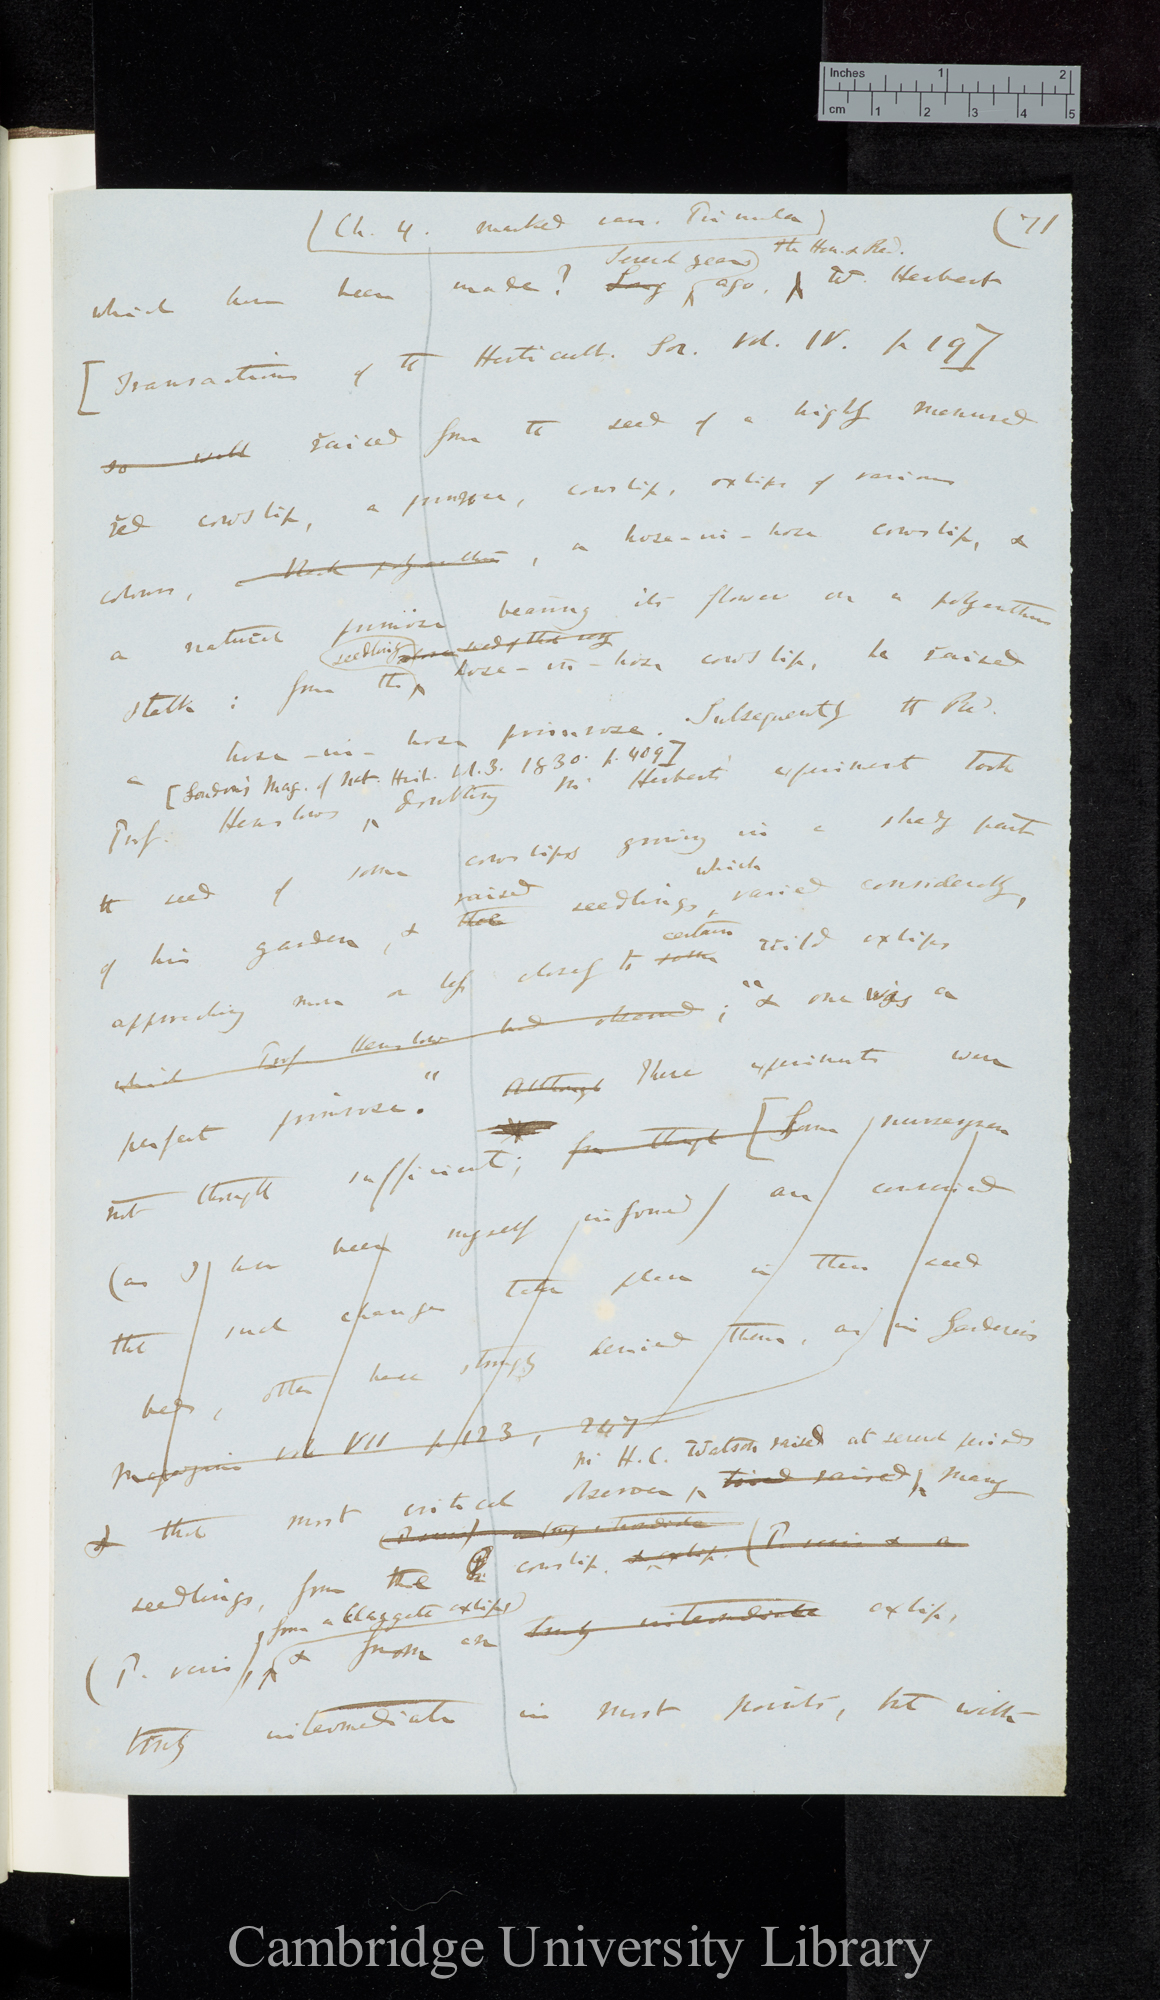 Inches 1 2
cm 1 2 3 4 5
(Ch. 4. marked var. Primula) (71
Several years the Hon. & Rev.
which have been made? Long ago, W. Herbert
[Transactions of the Horticult. Soc. Vol. IV. p 19]
so well raised from the seed of a highly manured
red cowslip, a primrose, cowslip, oxlips of various
colours, black polyanthus, a hose-in-hose cowslip, &
a natural primrose bearing its flower on a polyanthus
seedling
stalk: from the hose-in-hose cowslip, he raised
a hose-in-hose primrose. Subsequently the Rev.
[Loudon's Mag. of Nat. Hist. vol. 3. 1830. p. 409]
Prof. Henslow, doubting Mr Herbert's experiment took
the seed of some cowslips growing in a shady part
raised which
of his garden, & seedlings varied considerably,
certain
approaching more or less closely to some wild oxlips
which Prof Henslow had observed; "& one was a
perfect primrose." Although These experiments were
not thought sufficient; for though [Some nurserymen
(as I have been myself informed) are convinced
that such changes take place in their seed
beds, others have strongly denied them, as in Gardener's
Magazine vol VII p 123, 247
Mr H. C. Watson raised at several periods
& that most critical observer, raised many
seedlings, from the cowslip, & oxlip. (P. veris & a
from a Claygate oxlips)
(P. veris), & from an truly intermediate oxlip,
truly intermediate in most points, but with
Cambridge University Library